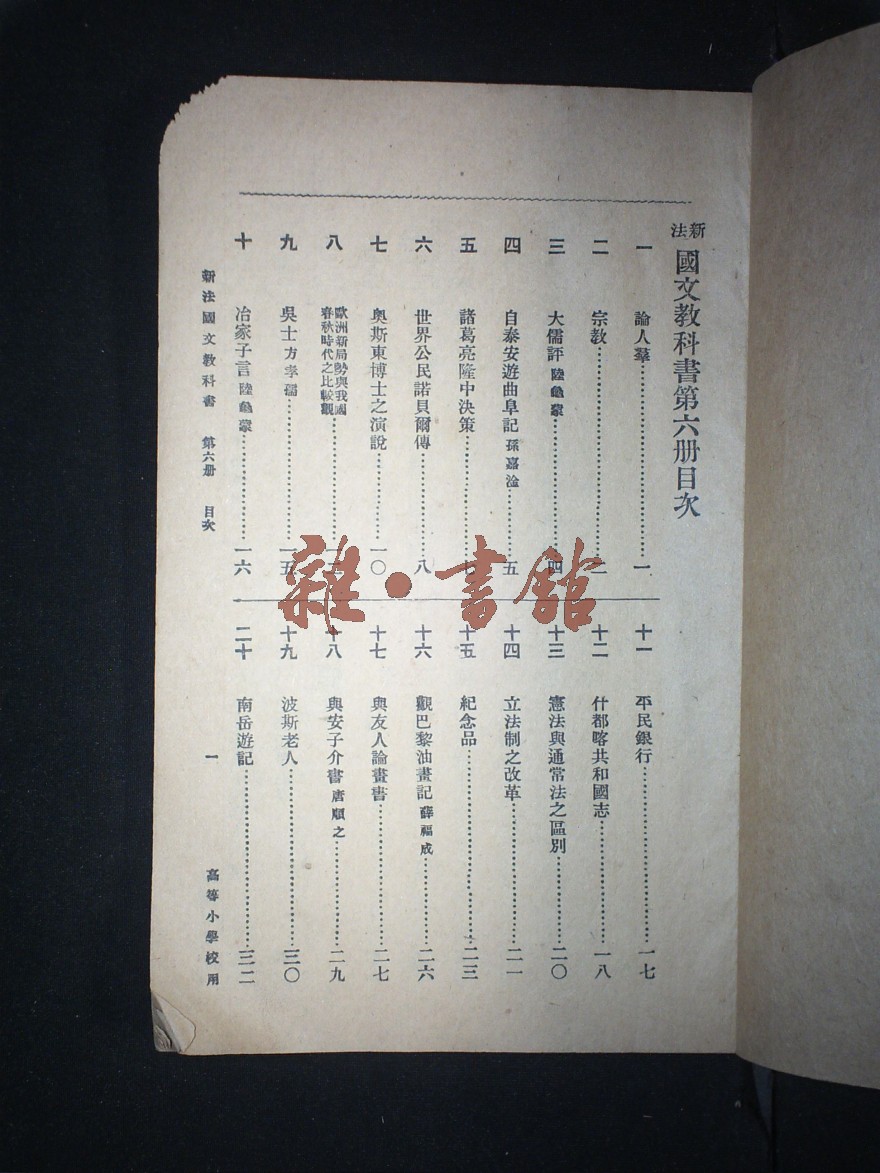 新法國文教科書第六册目次
一 論人羣 一
二 宗教 二
三 大儒評 陸龜蒙 四
四 自泰安遊曲阜記 孫嘉淦 五
五 諸葛亮隆中決策 七
六 世界公民諾貝爾傳 八
七 奧斯東博士之演說 一〇
八 歐洲新局勢與我國春秋時代之比較觀
九 吳士 方孝孺 一五
十 冶家子言 陸龜蒙 一六
十一 平民銀行 一七
十二 什都喀共和國志 一八
十三 憲法與通常法之區別 二〇
十四 立法制之改革 二一
十五 紀念品 二三
十六 觀巴黎油畫記 薛福成 二六
十七 與友人論畫書 二七
十八 與安子介書 唐順之 二九
十九 波斯老人 三〇
二十 南岳遊記 三二
新法國文教科書 第六册 目次 一 高等小學校用
雜·書館